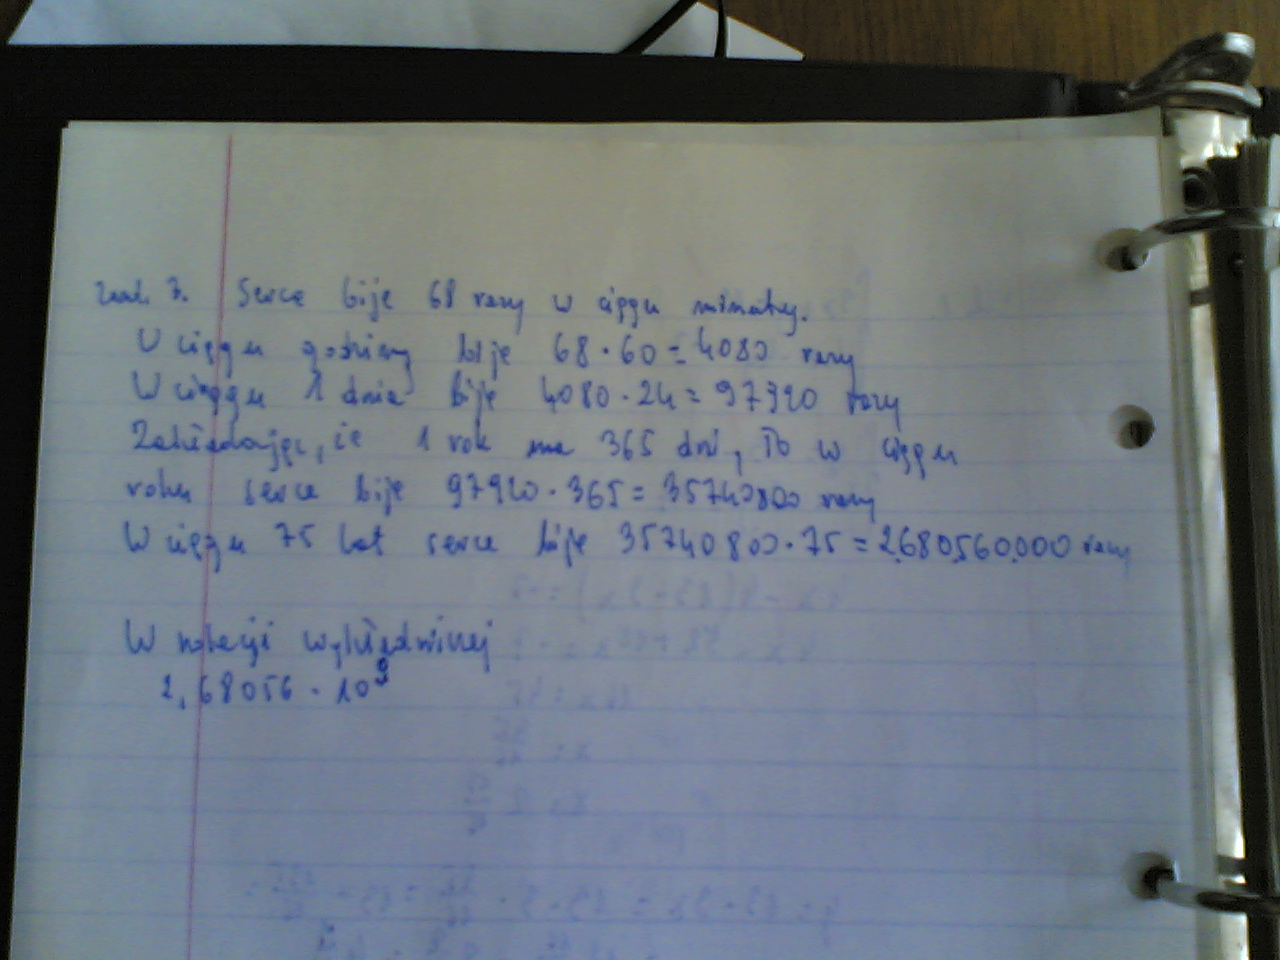 zad. 3. Serce bije 68 razy w ciągu minuty.
W ciągu godziny bije 68 · 60 = 4080 razy
W ciągu 1 dnia bije 4080 · 24 = 97920 razy
Zakładając, że 1 rok ma 365 dni, to w ciągu
roku serce bije 97920 · 365 = 35740800 razy
W ciągu 75 lat serce bije 35740800 · 75 = 2.680.560.000 razy
W notacji wykładniczej
2,68056 · 10⁹